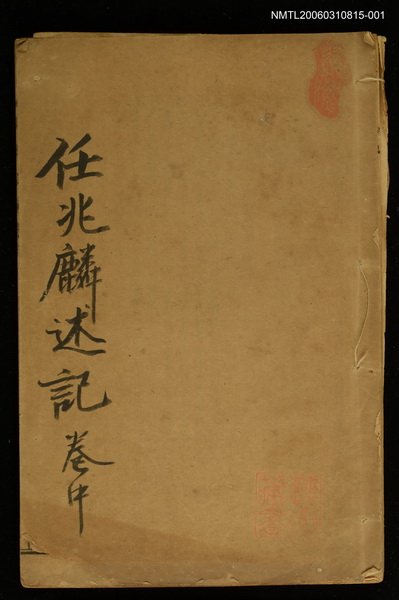 NMTL20060310815-001
任兆麟述記卷中